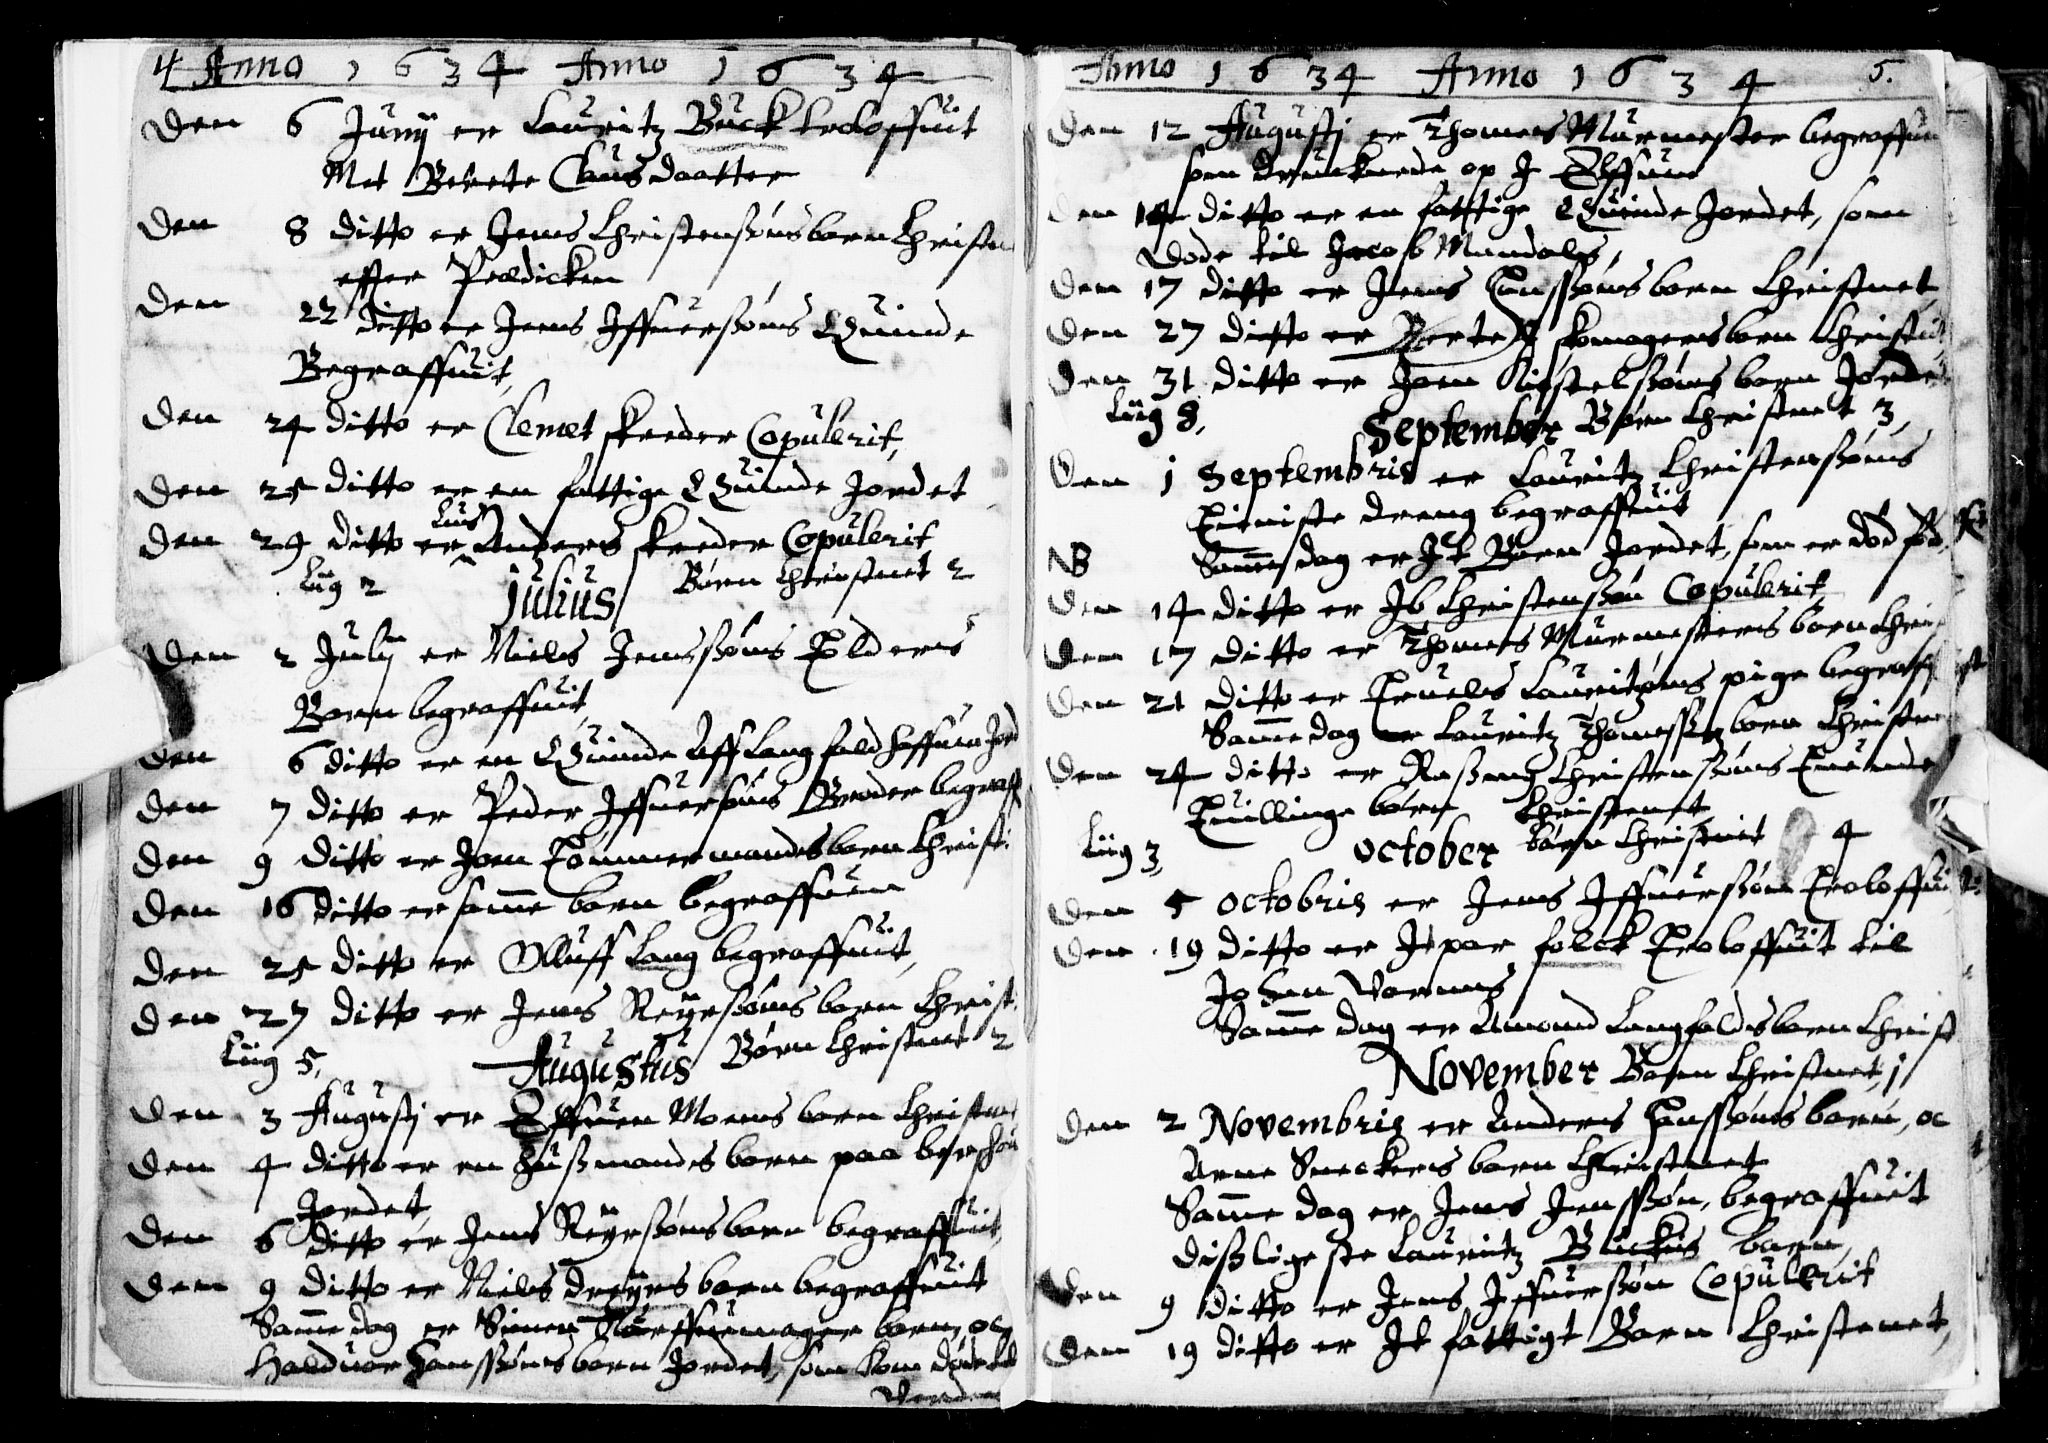 4 Anno 1634 Anno 1634
Den 6 Junij er Lauritz Buck troloffuit
Met Berete Clausdaatter
Den 8 ditto er Jens Christensøns barn Christn
effter Predicken
Den 22 ditto er Jens Iffuersøns Quinde
Begraffuit,
Den 24 ditto er Clemet skreder Copulerit,
Den 25 ditto er en fattige Quinde Jordet
Den 29 ditto er Anders skreder Copulerit
Liig 2 Julius Børn Christnet 2
Den 2 July er Niels Jenssøns Elderis
Barn begraffuit,
Den 6 ditto er en Quinde Aff Lang
Den 7 ditto er Peder Iffuersøns Broder begraff
Den 9 ditto er Joen Tømmermands barn Christ
Den 16 ditto er samme barn begraffuen
Den 25 ditto er Oluff Lang begraffuit,
Den 27 ditto er Jens Reyersøns barn Christ
Liig 5, Augustus Børn Christnet 2
Den 3 Augustj er Effuen Moens barn Christne
Den 4 ditto er en Hußmands barn paa
Jordet
Den 6 ditto er Jens Reyersøns barn begraffuit,
Den 9 ditto er Niels Dreyers barn begraffuit
Samme dag er Simen barn, oc
Halduor Hanssøns barn Jordet, som kom døde til
Verden
Anno 1634 Anno 1634 5.
Den 12 Augustj er Thomes Murmester begraffuen
som druknede op J Elffuen
Den 14 ditto er en fattige Quinde Jordet, som
døde til Jacob Mandals,
Den 17 ditto er Jens Hanssøns barn Christnet
Den 27 ditto er Bertel skomagers barn Christnit,
Den 31 ditto er Joen Kiestelssøns barn Jordet
Liig 8, September Børn Christnet 3,
Den 1 Septembris er Lauritz Christenssøns
Tieniste dreng begraffuit
NB Samme dag er Jt Barn Jordet, som er død fød
Den 14 ditto er Ib Christensøn Copulerit
Den 17 ditto er Thomes Murmesters barn Chri
Den 21 ditto er Truels Lauritzøns pige begraff
Samme dag er Lauritz Thomessøns barn Christne
Den 24 ditto er Rasmus Christensøns
Tuillinge børn Christenet
Liig 3, October børn Christnit 4
Den 5 Octobris er Jens Iffuersøn Troloffui
Den 19 ditto er Jt par folck Troloffuit til
Johan
Samme dag er Amond Langfalds barn Christ
November Børn Christnet, 1
Den 2 Novembris er Anders Hanssøns barn, oc
Arne Sneckers barn Christnet
Samme dag er Jens Jenssøn, begraffuit
dißligeste Lauritz Buckis barn,
Den 9 ditto er Jens Iffuersøn Copulerit
Den 19 ditto er Jt fattigt Barn Christenet,